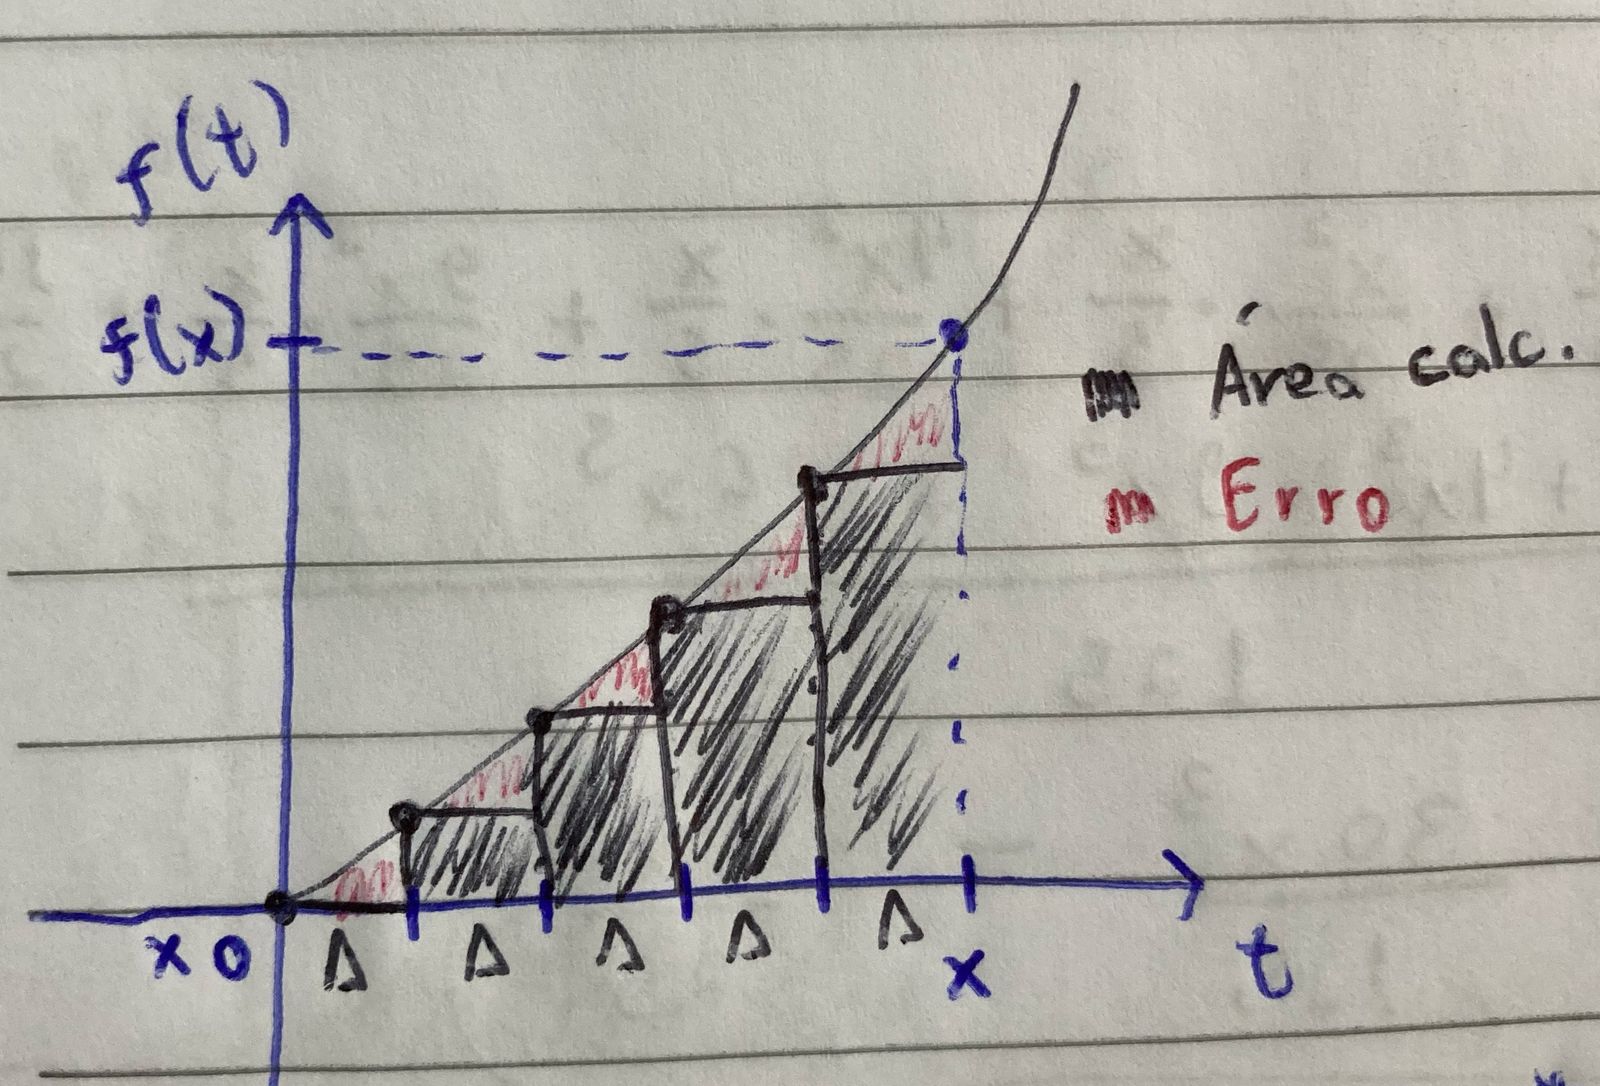 f(t)
f(x)
Área calc.
Erro
x 0
Δ Δ Δ Δ Δ
x
t